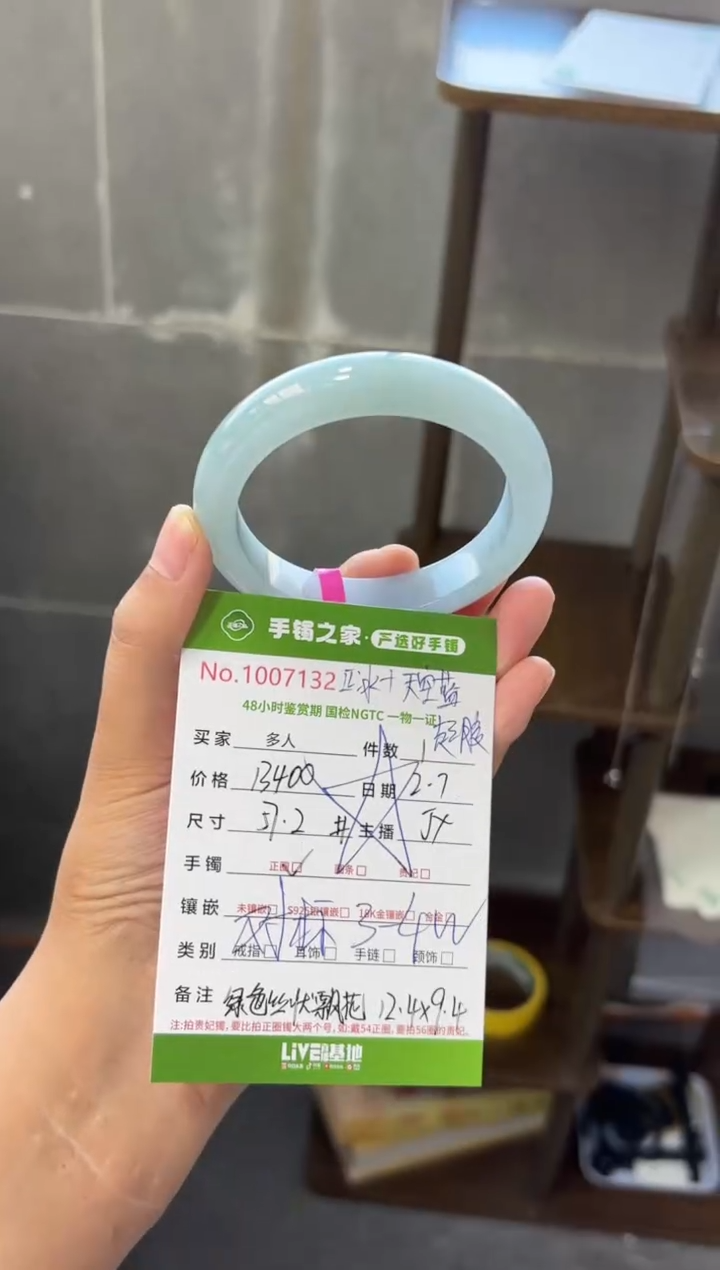 手镯之家·严选好手镯
No.1007132 正冰+天空蓝
48小时鉴赏期 国检NGTC 一物一证
凝胶
买家 多人 件数 1
价格 13400 日期 2.7
尺寸 57.2 # 主播
手镯 正圈□ 圆条□ 贵妃□
镶嵌 未镶嵌□ S925银镶嵌□ 18K金镶嵌□ 合金□
对标 3-4W
类别 戒指□ 耳饰□ 手链□ 颈饰□
备注 绿色丝状飘花 12.4x9.4
注:拍贵妃镯,要比拍正圈镯大两个号,如:戴54正圈,要拍56圈的贵妃.
LiVE基地